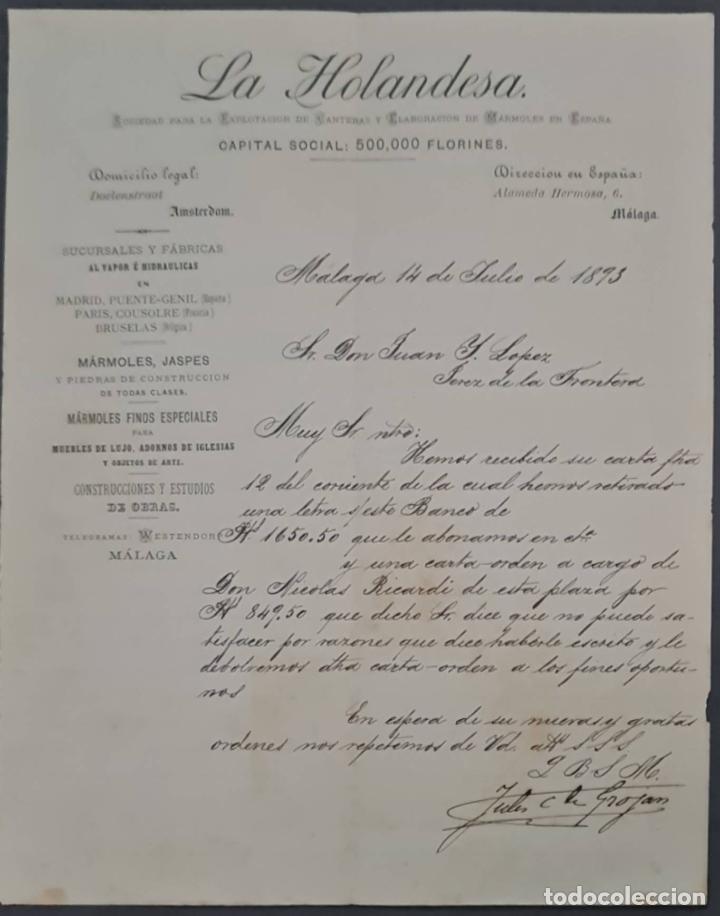 La Holandesa.
Sociedad para la Explotacion de Canteras y Elaboracion de Mármoles en España
CAPITAL SOCIAL: 500,000 FLORINES.
Domicilio legal:
Doelenstraat
Amsterdam.
Direccion en España:
Alameda Hermosa, 6.
Málaga.
SUCURSALES Y FÁBRICAS
AL VAPOR É HIDRAULICAS
EN
MADRID, PUENTE-GENIL (España)
PARIS, COUSOLRE (Francia)
BRUSELAS (Bélgica)
MÁRMOLES, JASPES
Y PIEDRAS DE CONSTRUCCION
DE TODAS CLASES.
MÁRMOLES FINOS ESPECIALES
PARA
MUEBLES DE LUJO, ADORNOS DE IGLESIAS
Y OBJETOS DE ARTE.
CONSTRUCCIONES Y ESTUDIOS
DE OBRAS.
TELEGRAMAS: WESTENDORP
MÁLAGA
Málaga 14 de Julio de 1893
Sr. Don Juan Y. Lopez
Jerez de la Frontera
Muy Sr. ntro:
Hemos recibido su carta fha
12 del coriente de la cual hemos retirado
una letra s/este Banco de
1650.50 que le abonamos en cta
y una carta-orden a cargo de
Don Nicolas Ricardi de esta plaza por
849.50 que dicho Sr. dice que no puede sa-
tisfacer por razones que dice haberle escrito y le
debolvemos dha carta-orden a los fines oportu-
nos
En espera de su nuevas y gratas
ordenes nos repetimos de Vd. att S S S
Q B S M.
Jules
todocoleccion
todocoleccion.net